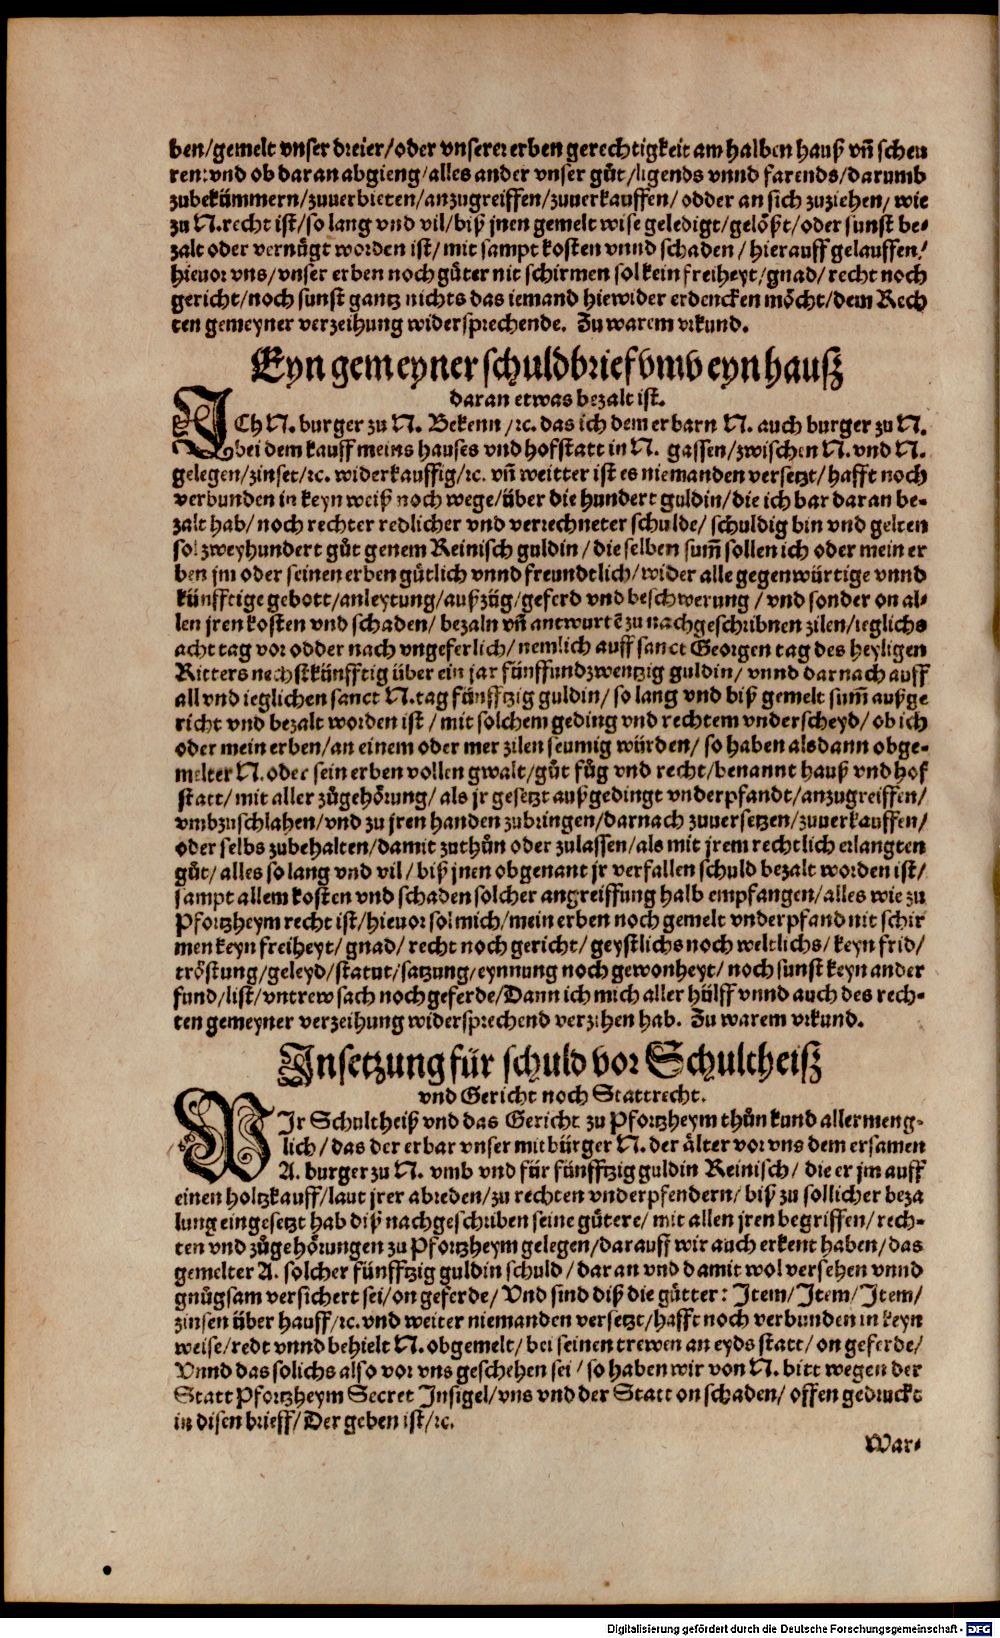 ben/gemelt vnser dreier/oder vnserer erben gerechtigkeit am halben hauß vñ scheu
ren: vnd ob daran abgieng/alles ander vnser gůt/ligends vnnd farends/darumb
zubekümmern/zuuerbieten/anzugreiffen/zuuerkauffen/ odder an sich zuziehen/ wie
zu N. recht ist/so lang vnd vil/biß jnen gemelt wise geledigt/gelößt/oder sunst be-
zalt oder vernůgt worden ist/ mit sampt kosten vnnd schaden/ hierauff gelauffen/
hieuor vns/vnser erben noch gůter nit schirmen sol kein freiheyt/gnad/ recht noch
gericht/noch sunst gantz nichts das iemand hiewider erdencken möcht/dem Rech
ten gemeyner verzeihung widersprechende. Zu warem vrkund.
Eyn gemeyner schuldbrief vmb eyn hausz
daran etwas bezalt ist.
ICh N. burger zu N. Bekenn/ꝛc. das ich dem erbarn N. auch burger zu N.
bei dem kauff meins hauses vnd hofstatt in N. gassen/zwischen N. vnd N.
gelegen/zinset/ꝛc. widerkauffig/ꝛc. vñ weitter ist es niemanden versetzt/ hafft noch
verbunden in keyn weiß noch wege/über die hundert guldin/die ich bar daran be-
zalt hab/ noch rechter redlicher vnd verrechneter schulde/ schuldig bin vnd gelten
sol zweyhundert gůt genem Reinisch guldin/ die selben sum̃ sollen ich oder mein er
ben jm oder seinen erben gütlich vnnd freundtlich/wider alle gegenwürtige vnnd
künfftige gebott/anleytung/außzüg/geferd vnd beschwerung/ vnd sonder on al-
len jren kosten vnd schaden/ bezaln vñ antwurtē zu nachgeschribnen zilen/ieglichs
acht tag vor odder nach vngeferlich/ nemlich auff sanct Georgen tag des heyligen
Ritters nechstkünfftig über ein jar fünffundzwentzig guldin/ vnnd darnach auff
all vnd ieglichen sanct N. tag fünfftzig guldin/ so lang vnd biß gemelt sum̃ außge
richt vnd bezalt worden ist/ mit solchem geding vnd rechtem vnderscheyd/ ob ich
oder mein erben/an einem oder mer zilen seumig würden/ so haben alsdann obge-
melter N. oder sein erben vollen gwalt/gůt fůg vnd recht/benannt hauß vnd hof
statt/ mit aller zůgehörung/ als jr gesetzt außgedingt vnderpfandt/anzugreiffen/
vmbzuschlahen/vnd zu jren handen zubringen/darnach zuuersetzen/zuuerkauffen/
oder selbs zubehalten/damit zuthůn oder zulassen/als mit jrem rechtlich erlangten
gůt/ alles so lang vnd vil/ biß jnen obgenant jr verfallen schuld bezalt worden ist/
sampt allem kosten vnd schaden solcher angreiffung halb empfangen/alles wie zu
Pfortzheym recht ist/hieuor sol mich/mein erben noch gemelt vnderpfand nit schir
men keyn freiheyt/ gnad/ recht noch gericht/ geystlichs noch weltlichs/ keyn frid/
tröstung/geleyd/statut/satzung/eynnung noch gewonheyt/ noch sunst keyn ander
fund/list/vntrew sach noch geferde/Dann ich mich aller hülff vnnd auch des rech-
ten gemeyner verzeihung widersprechend verzihen hab. Zu warem vrkund.
Insetzung für schuld vor Schultheisz
vnd Gericht noch Stattrecht.
WIr Schultheiß vnd das Gericht zu Pfortzheym thůn kund allermeng-
lich/ das der erbar vnser mitbürger N. der älter vor vns dem ersamen
A. burger zu N. vmb vnd für fünfftzig guldin Reinisch/ die er jm auff
einen holtzkauff/laut jrer abreden/zu rechten vnderpfendern/ biß zu sollicher beza
lung eingesetzt hab diß nachgeschriben seine gůtere/ mit allen jren begriffen/ rech-
ten vnd zůgehörungen zu Pfortzheym gelegen/darauff wir auch erkent haben/das
gemelter A. solcher fünfftzig guldin schuld/ daran vnd damit wol versehen vnnd
gnůgsam versichert sei/on geferde/ Vnd sind diß die gütter: Item/Item/Item/
zinsen über hauff/ꝛc. vnd weiter niemanden versetzt/hafft noch verbunden in keyn
weise/redt vnnd behielt N. obgemelt/ bei seinen trewen an eyds statt/ on geferde/
Vnnd das solichs also vor vns geschehen sei/ so haben wir von N. bitt wegen der
Statt Pfortzheym Secret Insigel/vns vnd der Statt on schaden/ offen gedruckt
in disen brieff/ Der geben ist/ꝛc.
War-
Digitalisierung gefördert durch die Deutsche Forschungsgemeinschaft - DFG